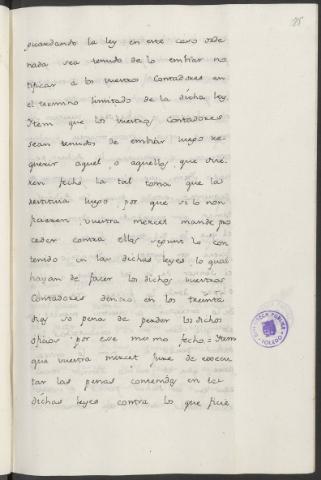 85
guardando la ley en este caso orde
nada sea tenudo de lo embiar no
tificar a los vuestros Contadores en
el termino limitado de la dicha ley.
Item que los vuestros Contadores
sean tenudos de embiar luego re
querir aquel o aquellos que ovie
ren fecho la tal toma que la
restituia luego, por que si lo non
ficieren, vuestra merced mande pro
ceder contra ellos segunt lo con
tenido en las dichas leyes lo qual
hayan de facer los dichos vuestros
Contadores dentro en los treinta
dias so pena de perder los dichos
oficios por ese mesmo fecho = Item
que vuestra merced jure de execu
tar las penas contenidas en las
dichas leyes contra los que ficie
BIBLIOTECA PUBLICA
TOLEDO